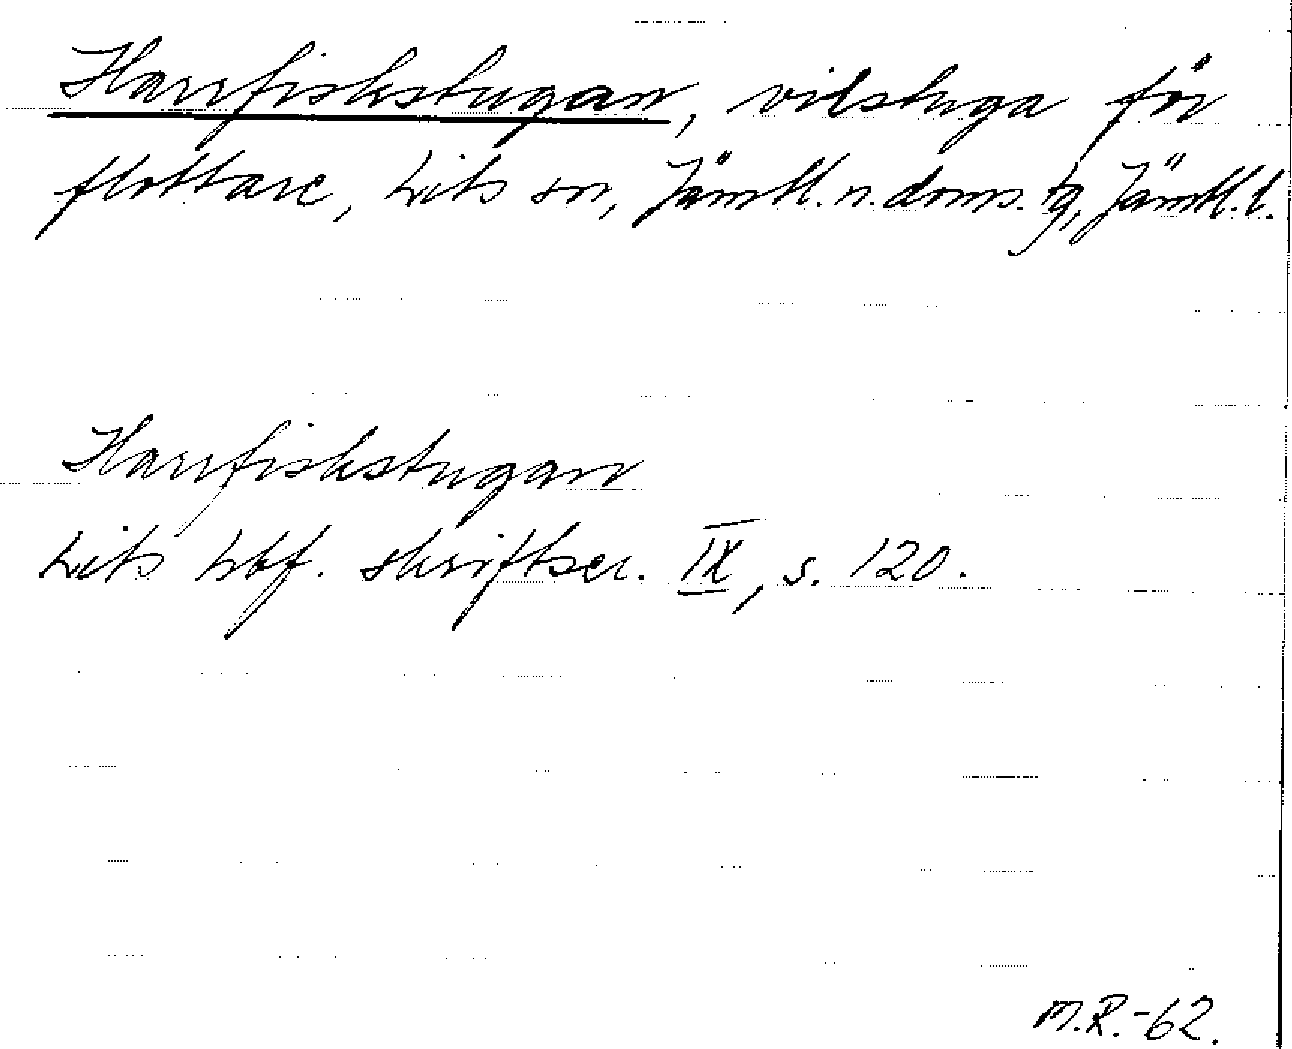 Harrfiskstugan, vilstuga för
flottare, Lits sn, Jämtl. n. doms. tg, Jämtl. l.
Harrfiskstugan
Lits hbf. skriftser. IX, s. 120.
M.R.-62.